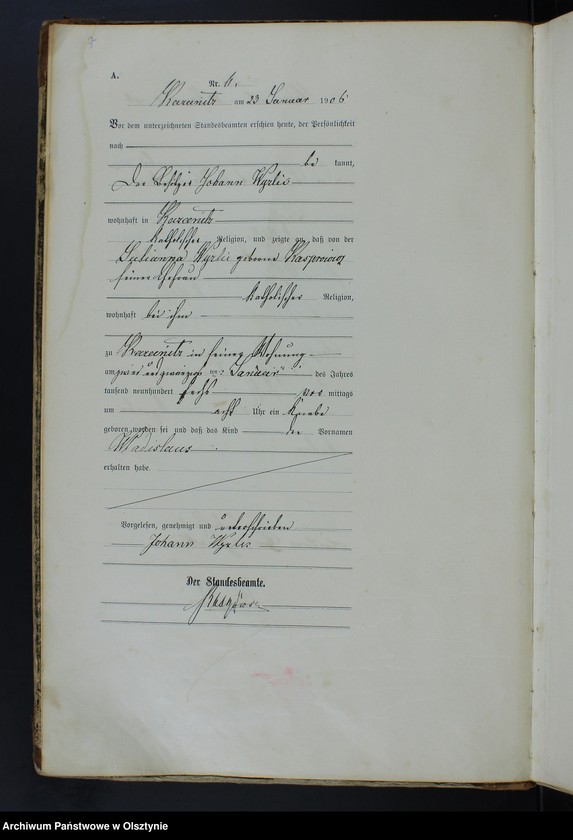 7
A.
Nr. 6.
Kazanitz am 23 Januar 1906
Vor dem unterzeichneten Standesbeamten erschien heute, der Persönlichkeit
nach
be kannt,
Der Besitzer Johann Wyzlic
wohnhaft in Kazanitz
katholischer Religion, und zeigte an, daß von der
Julianna Wyzlic geborene Kasprowicz
seiner Ehefrau
katholischer Religion,
wohnhaft bei ihm
zu Kazanitz in seiner Wohnung
am zwei und zwanzigsten Januar des Jahres
tausend neunhundert sechs vor mittags
um acht Uhr ein Knabe
geboren worden sei und daß das Kind den Vornamen
Wladislaus
erhalten habe.
Vorgelesen, genehmigt und unterschrieben
Johann Wyzlic
Der Standesbeamte.
Archiwum Państwowe w Olsztynie